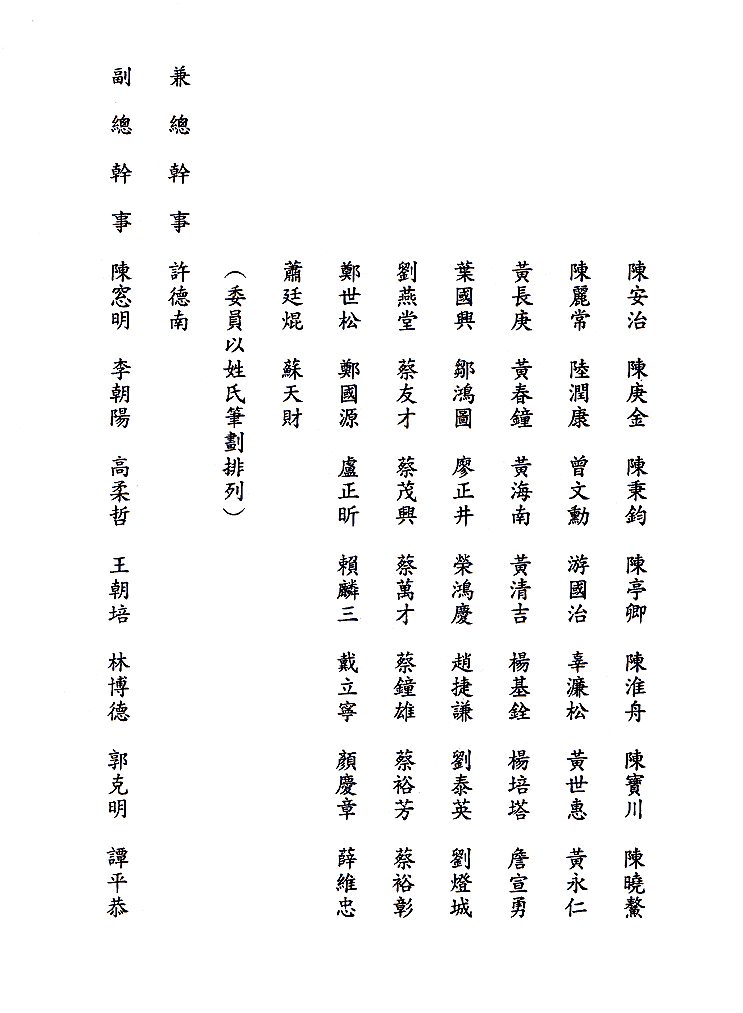 陳安治 陳庚金 陳秉鈞 陳亭卿 陳淮舟 陳寶川 陳曉鰲
陳麗常 陸潤康 曾文勳 游國治 辜濂松 黃世惠 黃永仁
黃長庚 黃春鐘 黃海南 黃清吉 楊基銓 楊培塔 詹宣勇
葉國興 鄒鴻圖 廖正井 榮鴻慶 趙捷謙 劉泰英 劉燈城
劉燕堂 蔡友才 蔡茂興 蔡萬才 蔡鐘雄 蔡裕芳 蔡裕彰
鄭世松 鄭國源 盧正昕 賴麟三 戴立寧 顏慶章 薛維忠
蕭廷焜 蘇天財
（委員以姓氏筆劃排列）
兼總幹事 許德南
副總幹事 陳窓明 李朝陽 高柔哲 王朝培 林博德 郭克明 譚平恭